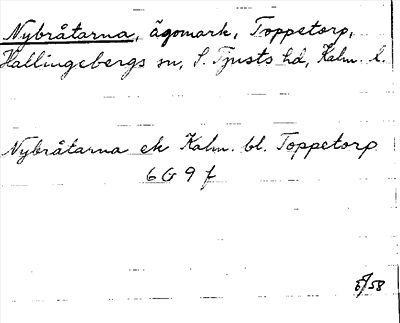 Nybråtarna, ägomark, Toppetorp,
Hallingebergs sn, S. Tjusts hd, Kalm. l.
Nybråtarna ek Kalm. bl. Toppetorp
6 G 9 f
58